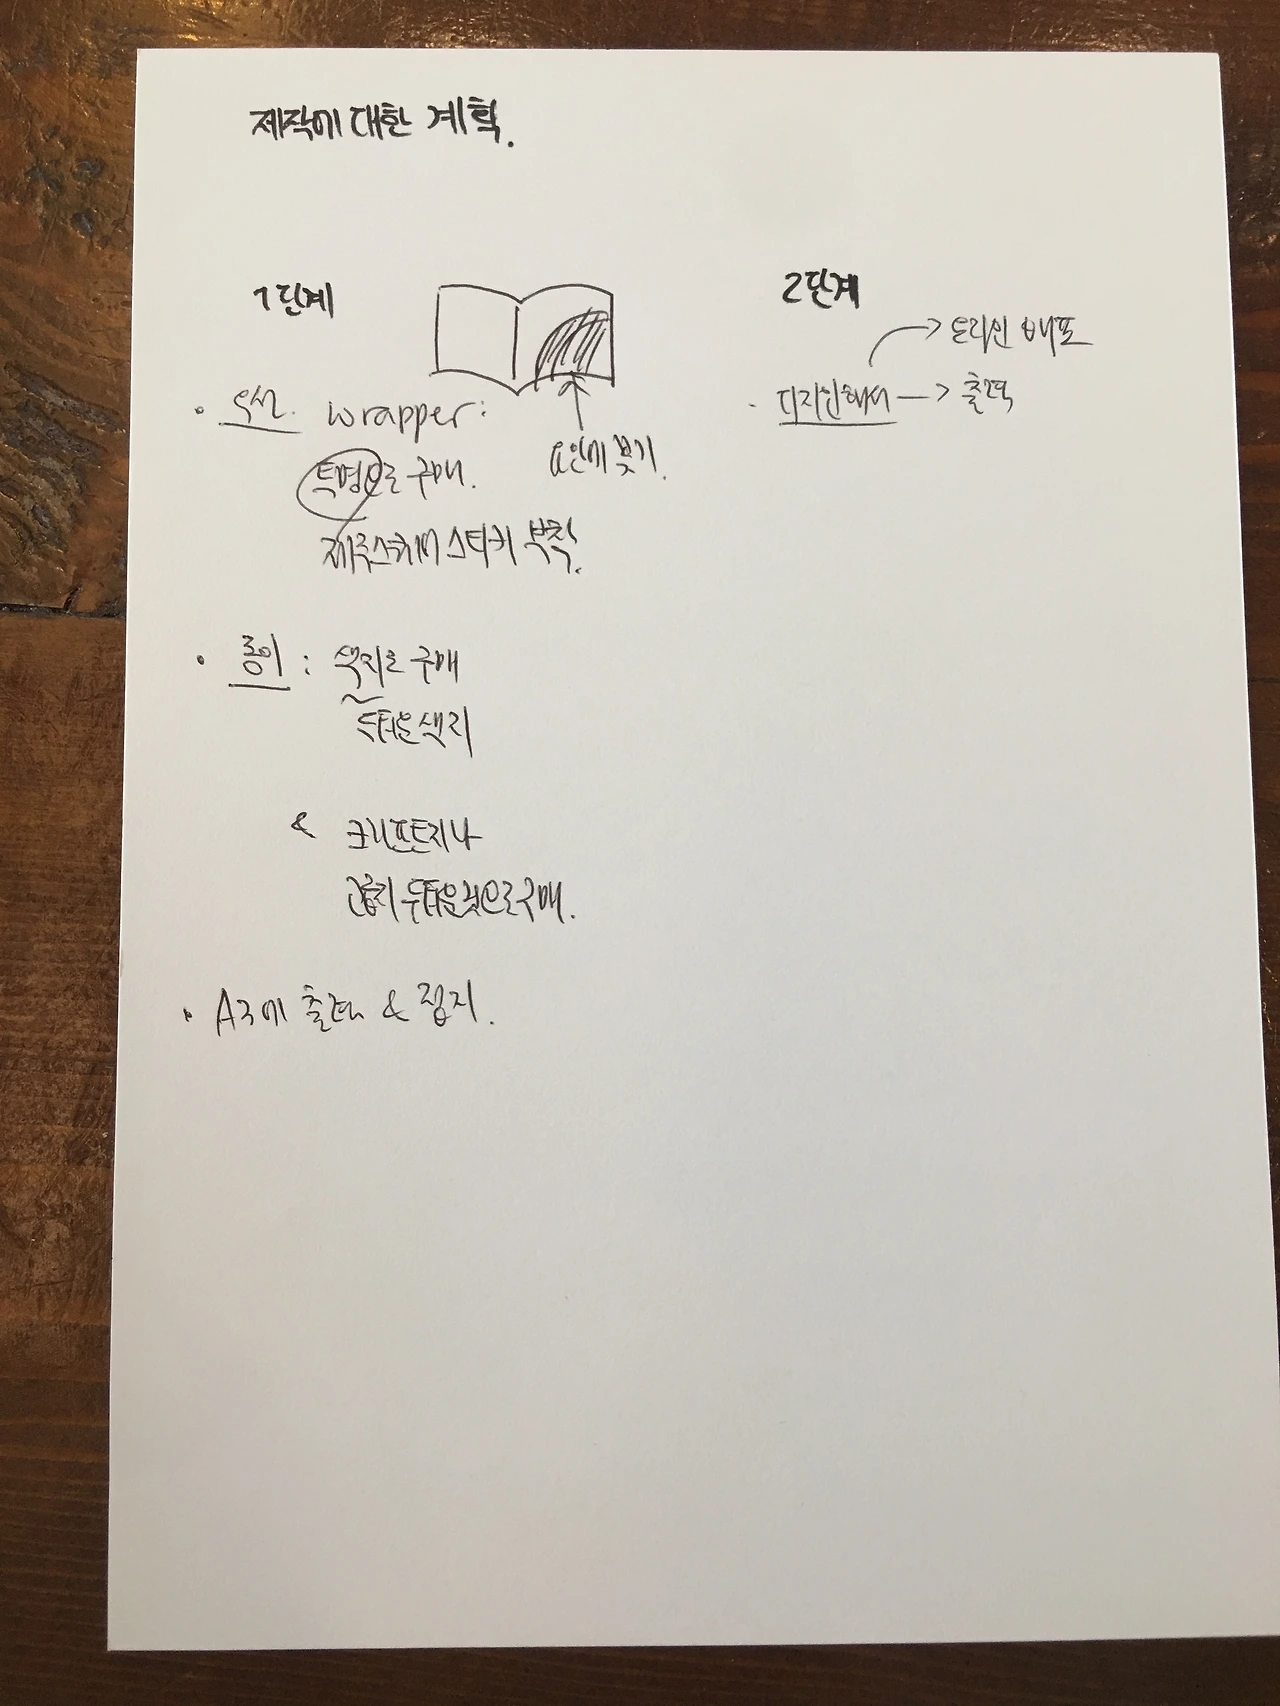 제작에 대한 계획.
1단계
우선. wrapper:
요안에 붙기.
투명으로 구매.
스티커 부착.
종이 : 색지로 구매
두터운 색지
& 크라프트지나
갱지 두터운것으로 구매.
A3에 출력 & 접지.
2단계
온라인 배포
디자인해서 → 출력